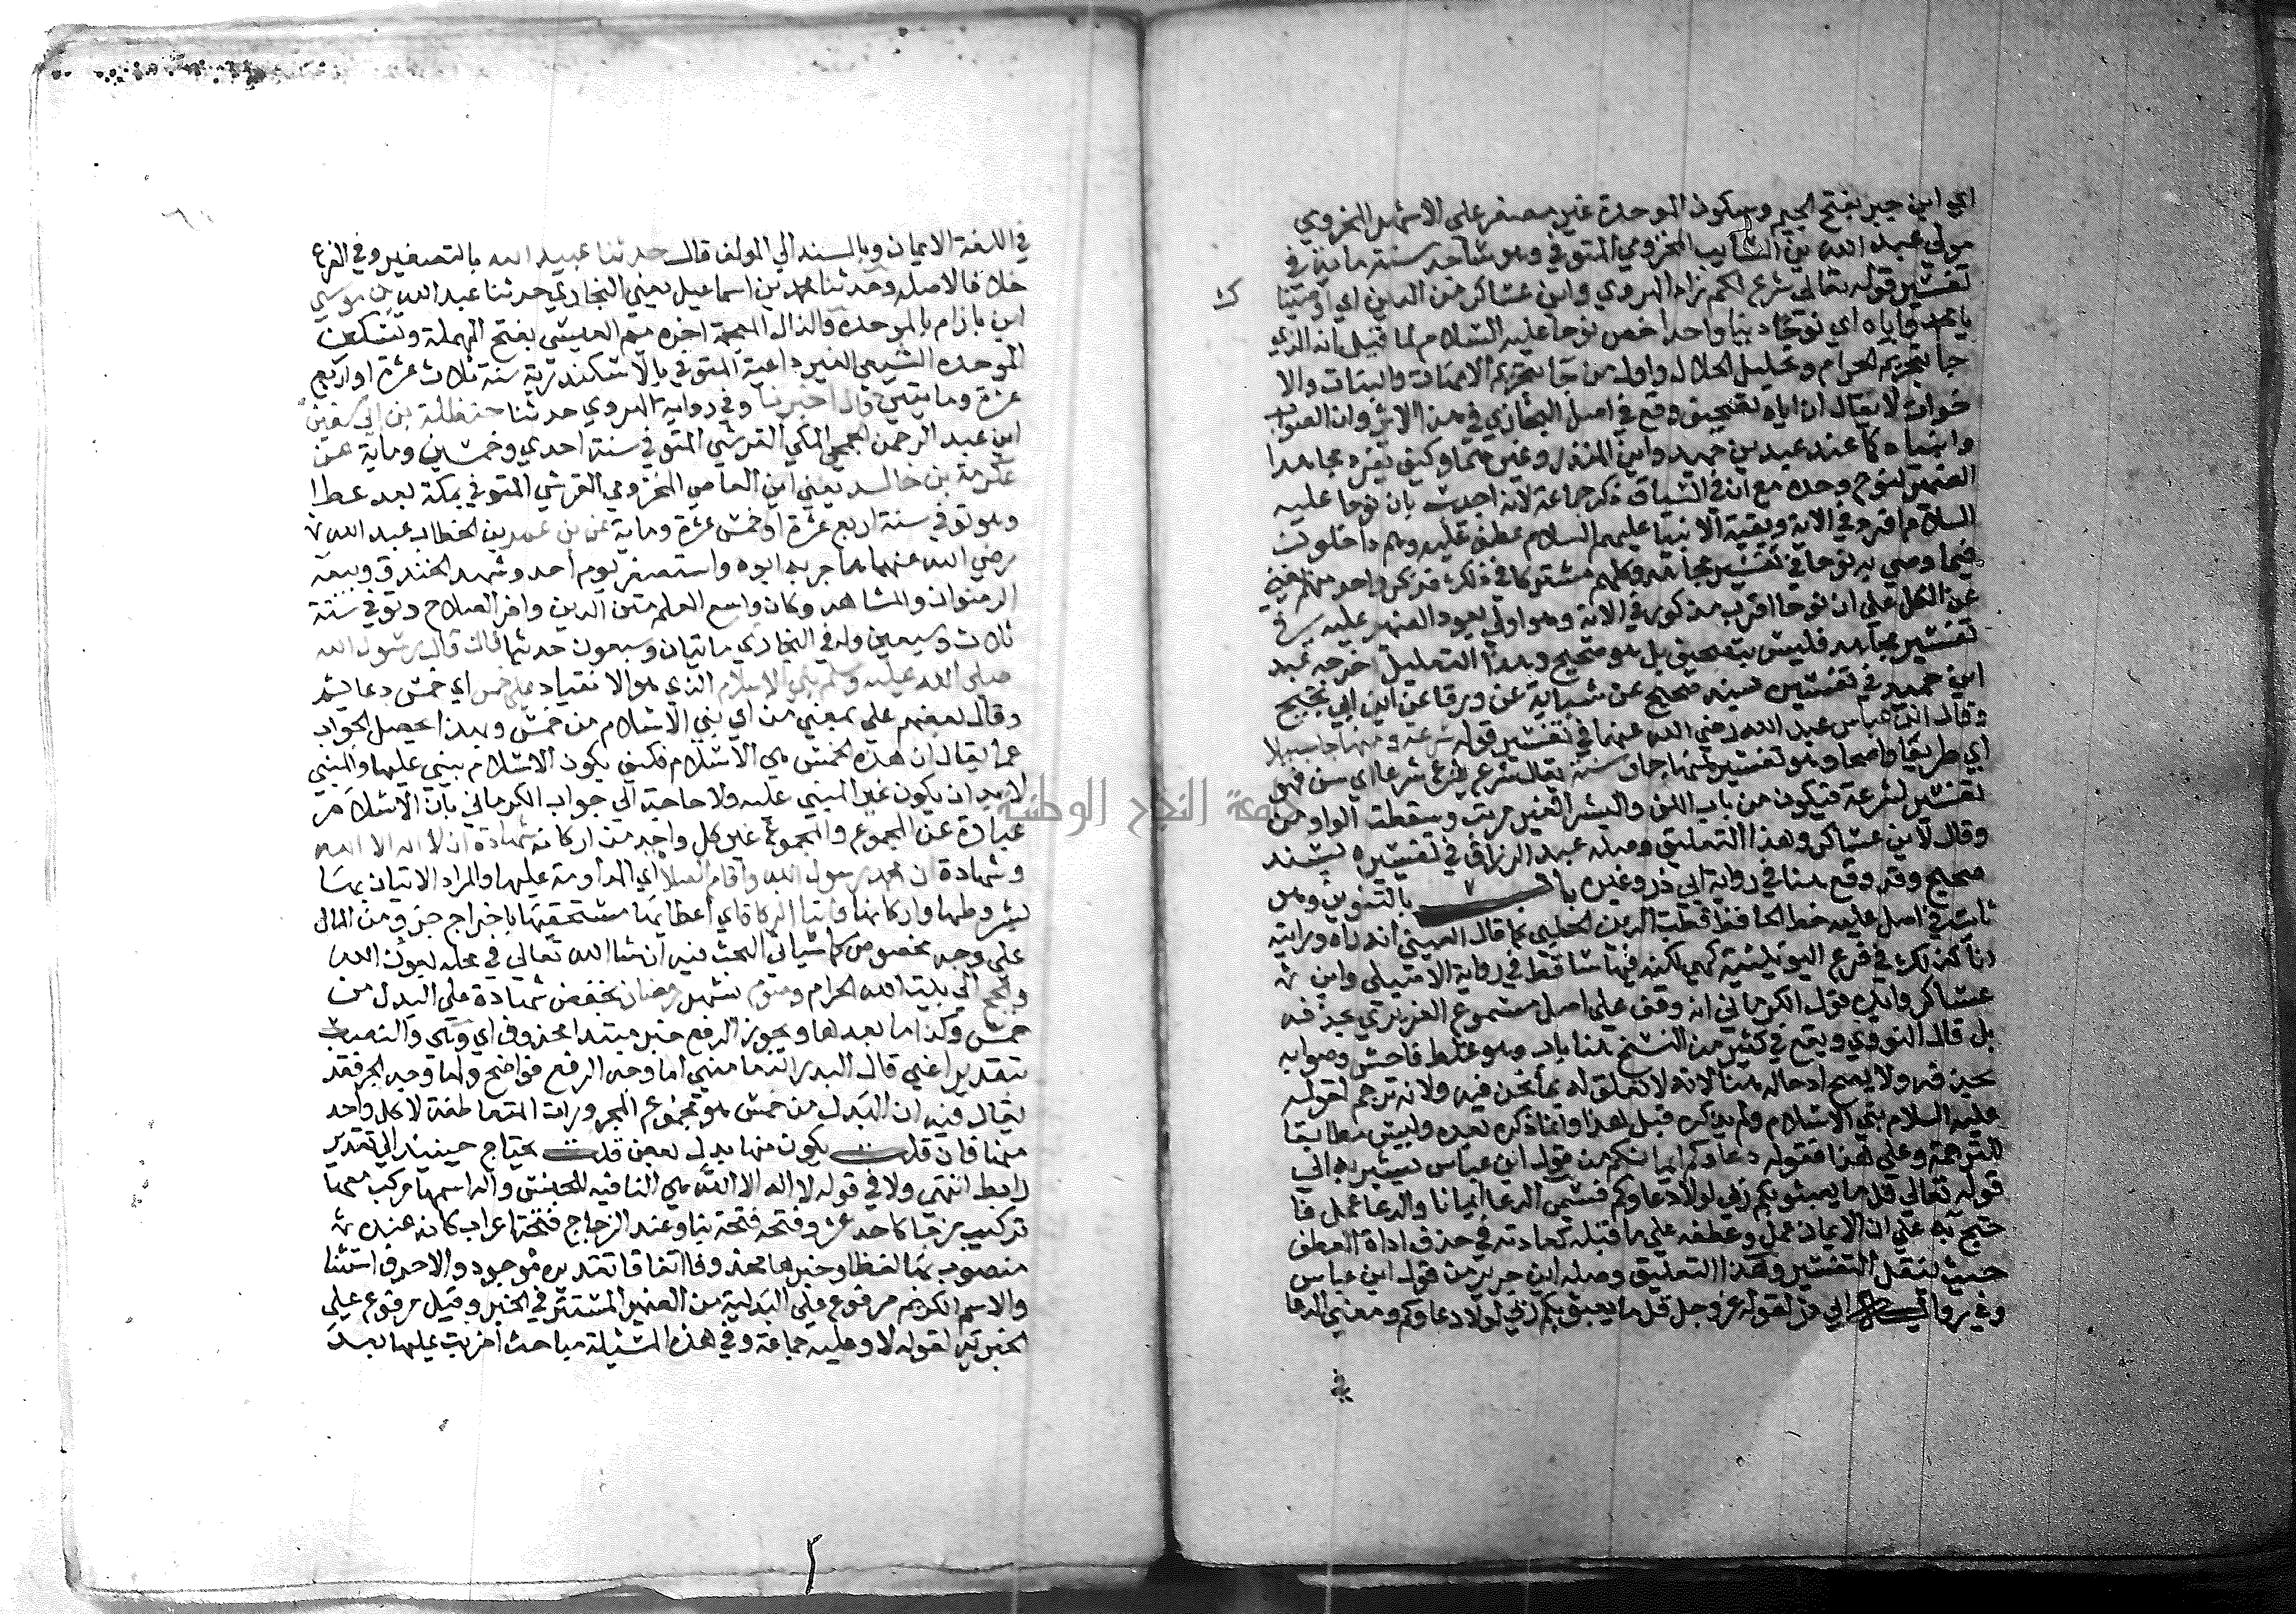 اي ابن جبر بفتح الجيم وسكون الموحدة غير مصغر على الاشهر المخزومي
مولى عبد الله بن السايب المخزومي المتوفي وهو ساجد سنة ماية في
تفسير قوله تعالى شرع لكم زاد الهروي وابن عساكر من الدين اي اوصيناك
يا محمد واياه اي نوحا دينا واحدا خص نوحا عليه السلام لما قيل انه الذي
جا بتحريم الحرام وتحليل الحلال واول من جا بتحريم الامهات والبنات والا
خوات لا يقال ان اياه تصحيف وقع في اصل البخاري في هذا الاثر وان الصواب
وانبياه كما عند عبد بن حميد وابن المنذر وغيرهما وكيف يفرد مجاهد
الضمير لنوح وحده مع ان في السياق ذكر جماعة لانه اجيب بان نوحا عليه
السلام افرد في الاية وبقية الانبيا عليهم السلام عطف عليه وهم داخلون
فيما وصي به نوحا في تفسير مجاهد وكلهم مشتركا في ذلك فذكر واحد منهم يغني
عن الكل على ان نوحا اقرب مذكور في الاية وهو اولى بعود الضمير عليه في
تفسير مجاهد فليس بتصحيف بل هو صحيح وهذا التعليل اخرجه عبد
ابن حميد في تفسيره بسند صحيح عن شبابة عن ورقا عن ابن ابي نجيح
وقال ابن عباس عبد الله رضي الله عنهما في تفسير قوله شرعة ومنهاجا سبيلا
اي طريقا واضحا وهو تفسير لمنهاجها وسنة يقال شرع يشرع شرعا اي سن فهو
تفسير لشرعة فيكون من باب اللف والنشر الغير مرتب وسقطت الواو من
وقال لابن عساكر وهذا التعليق وصله عبد الرزاق في تفسيره بسند
صحيح وقد وقع هنا في رواية ابي ذر وغيره باب بالتنوين وهو
ثابت في اصل عليه خط الحافظ قطب الدين الحلبي كما قال العيني انه راه ورايته
انا كذلك في فرع اليونينية كهي لكنه فيها ساقط في رواية الاصيلي وابن
عساكر وايده قول الكرماني انه وقف على اصل مسموع الفربري بحذفه
بل قال النووي ويقع في كثير من النسخ هنا باب وهو غلط فاحش وصوابه
بحذفه ولا يصح ادخاله هنا لانه لا تعلق له بما نحن فيه ولانه ترجم لقوله
عليه السلام بني الاسلام ولم يذكره قبل هذا وانما ذكره بعده وليس مطابقا
للترجمة وعلى هذا فقوله دعاوكم ايمانكم من قول ابن عباس يشير به الى
قوله تعالى قل ما يعبئو بكم ربي لولا دعاوكم فسمى الدعا ايمانا والدعا عمل فا
حتج به على ان الايمان عمل وعطفه على ما قبله كعادته في حذف اداة العطف
حيث ينقل التفسير وهذا التعليق وصله ابن جرير من قول ابن عباس
وفي رواية ابي ذر لقوله عز وجل قل ما يعبؤ بكم ربي لولا دعاوكم ومعنى الدعا
في
في اللغة الايمان وبالسند الى المولف قال حدثنا عبيد الله بالتصغير وفي الفرع
خلافا لاصله وحدثنا محمد بن اسماعيل يعني البخاري حدثنا عبد الله بن موسى
ابن باذام بالموحدة والذال المعجمة اخره ميم العبسي بفتح المهملة وتسكين
الموحدة الشيعي الغير داعية المتوفي بالاسكندرية سنة ثلاث عشرة او اربع
عشرة ومايتين قال اخبرنا وفي رواية الهروي حدثنا حنظلة بن ابي سفين
ابن عبد الرحمن الجمحي المكي القرشي المتوفي سنة احدي وخمسين وماية عن
عكرمة بن خالد يعني ابن العاصي المخزومي القرشي المتوفي بمكة بعد عطا
وهو توفي سنة اربع عشرة او خمس عشرة وماية عن بن عمر بن الخطاب عبد الله
رضي الله عنهما هاجر به ابوه واستصغر يوم احد وشهد الخندق وبيعة
الرضوان والمشاهد وكان واسع العلم متين الدين وافر الصلاح وتوفي سنة
ثلاث وسبعين وله في البخاري مايتان وسبعون حديثا قال قال رسول الله
صلى الله عليه وسلم بني الاسلام الذي هو الانقياد على خمس اي خمس دعايم
وقال بعضهم على بمعنى من اي بني الاسلام من خمس وبهذا يحصل الجواب
عما يقال ان هذه الخمس هي الاسلام فكيف يكون الاسلام يبني عليها والمبني
لا بد ان يكون غير المبني عليه ولا حاجة الى جواب الكرماني بان الاسلام
عبارة عن المجموع والمجموع غير كل واحد من اركانه شهادة ان لا اله الا الله
وشهادة ان محمد رسول الله واقام الصلاة اي المداومة عليها والمراد الاتيان بها
بشروطها واركانها وايتا الزكاة اي اعطايها مستحقها باخراج جزو من المال
على وجه مخصوص كما سياتي البحث فيه ان شا الله تعالى في محله بعون الله
والحج الى بيت الله الحرام وصوم شهر رمضان بخفض شهادة على البدل من
خمس وكذا ما بعدها ويجوز الرفع خبر مبتدا محذوف اي وهي والنصب
بتقدير اعني قال البدر الدماميني اما وجه الرفع فواضح واما وجه الجر فقد
يقال فيه ان البدل من خمس هو مجموع المجرورات المتعاطفة لا كل واحد
منها فان قلت يكون منها بدل بعض قلت يحتاج حينيذ الى تقدير
رابط انتهى ولا في قوله لا اله الا الله هي النافية للجنس واله اسمها مركب معها
تركيب مزج كاحد عشر وفتحه فتحة بنا وعند الزجاج فتحة اعراب كانه عنده
منصوب بها لفظا وخبرها محذوف اتفاقا تقديره موجود والا حرف استثنا
والاسم الكريم مرفوع على البدلية من الضمير المستتر في الخبر وقيل مرفوع على
الخبرية لقوله لا وعليه جماعة وفي هذه المسئلة مباحث اضربت عليها بعد
جامعة النجاح الوطنية